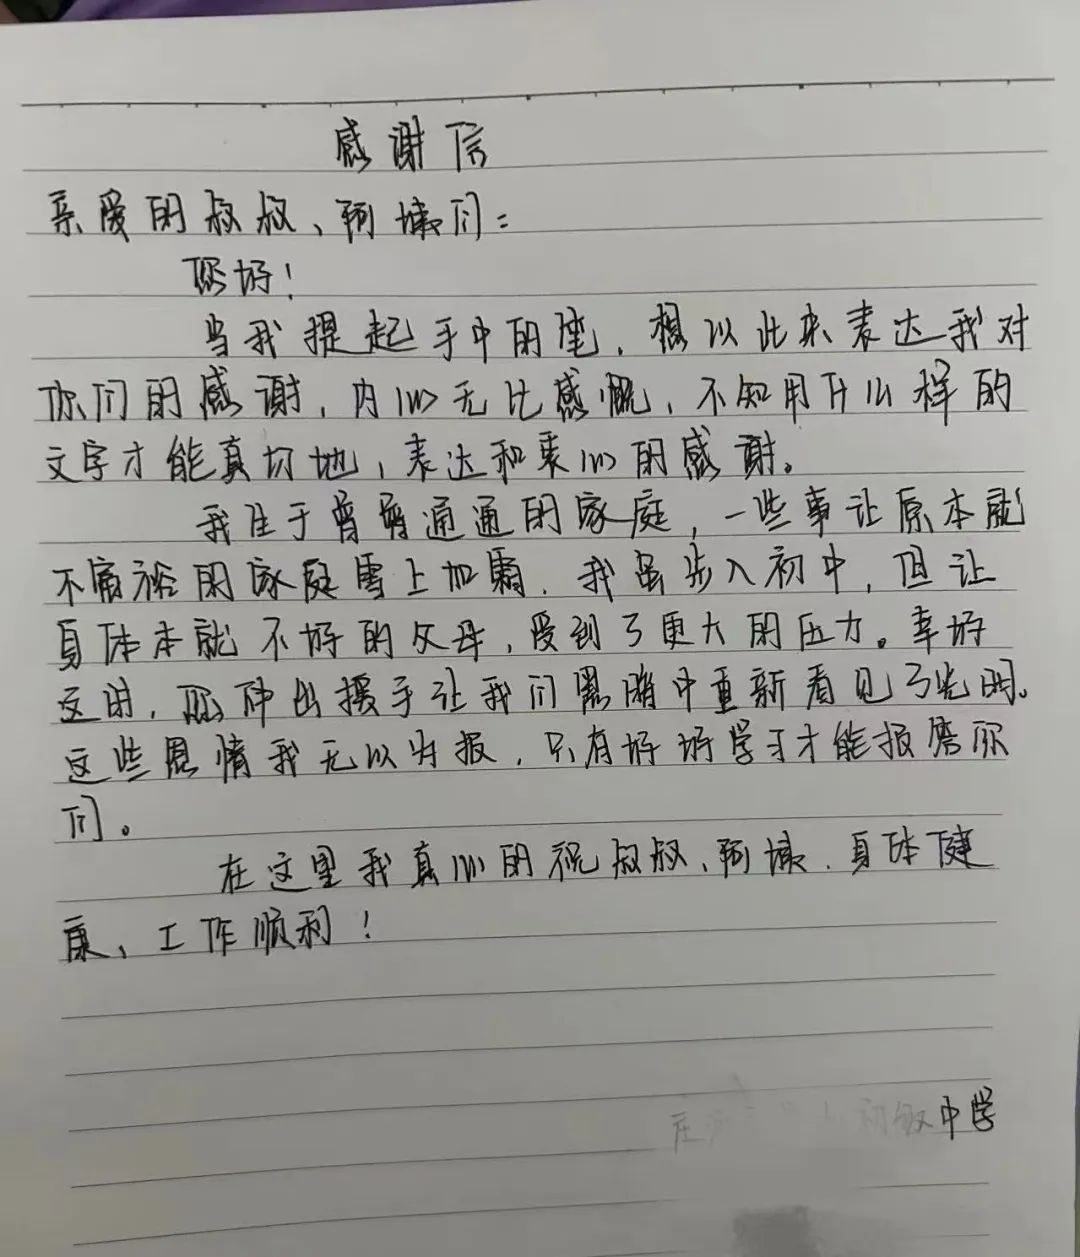 感谢信
亲爱的叔叔、阿姨们：
您好！
当我提起手中的笔，想以此来表达我对
你们的感谢，内心无比感慨，不知用什么样的
文字才能真切地，表达和衷心的感谢。
我生于普普通通的家庭，一些事让原本就
不富裕的家庭雪上加霜，我虽步入初中，但让
身体本就不好的父母，受到了更大的压力。幸好
这时，您伸出援手让我们黑暗中重新看见了光明。
这些恩情我无以为报，只有好好学习才能报答你
们。
在这里我真心的祝叔叔、阿姨，身体健
康、工作顺利！
初级中学